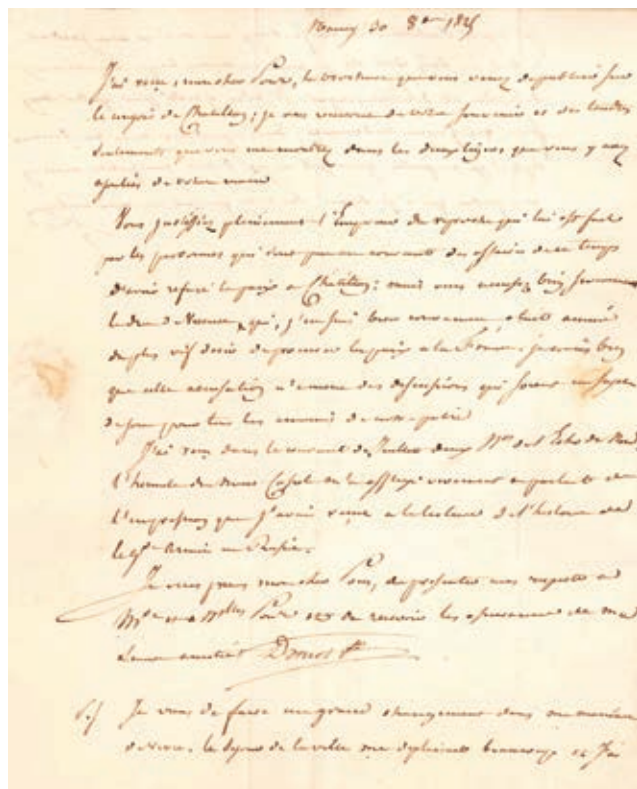 Nancy 30 8bre 1825
J'ai reçu, mon cher Pons, la brochure que vous venez de publier sur
le congrès de Chatillon; je vous remercie de votre souvenir et des tendres
sentiments que vous me montrez dans les deux lignes que vous y avez
ajoutées de votre main
Vous justifiez pleinement l'Empereur du reproche qui lui est fait
par les personnes qui sont peu au courant des affaires de ce temps
d'avoir refusé la paix à Chatillon; mais vous accusez bien
le duc de Vicence, qui, j'en suis bien convaincu, était animé
du plus vif désir de procurer la paix à la France. je crains bien
que cette accusation n'amène des discussions qui seront un sujet
de pour tous les amis de notre patrie
J'ai reçu dans le courant de Juillet deux Nos de l'Echo du Nord
L'hermite
L'impression que j'avais reçue à la lecture de l'histoire de
la Gde Armée en Russie.
Je vous prie mon cher Pons, de présenter mes respects à
Mme et à Mlles Pons et de recevoir les assurances de ma
bonne amitié Drouot
P.S. Je viens de faire un grand changement dans ma manière
de vivre. le séjour de la ville me déplaisait beaucoup et j'ai